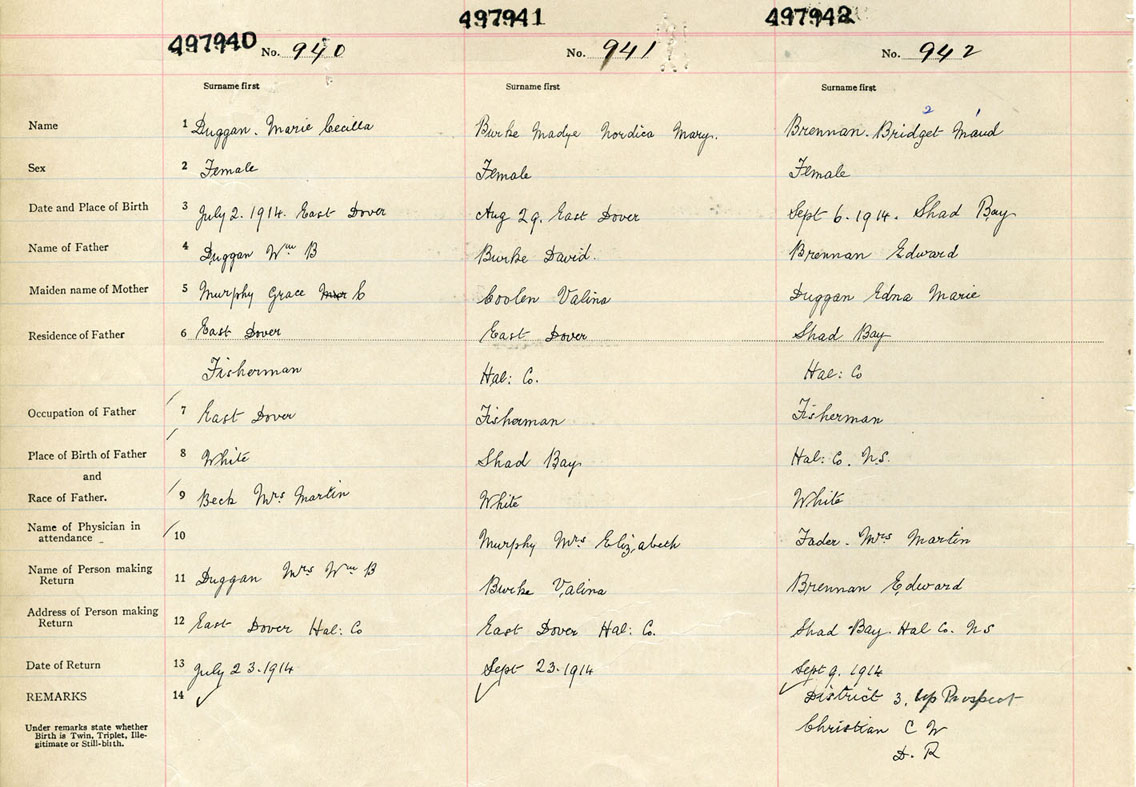 497940 497941 497942
No. 940 No. 941 No. 942
Surname first Surname first Surname first
2
Name 1 Duggan. Marie Cecilla Burke Madye Nordica Mary. Brennan. Bridget Maud
Sex 2 Female Female Female
Date and Place of Birth 3 July 2. 1914. East Dover Aug 29. East Dover Sept 6. 1914. Shad Bay
Name of Father 4 Duggan Wm B Burke David. Brennan Edward
Maiden name of Mother 5 Murphy Grace C Coolen Valina Duggan Edna Marie
Residence of Father 6 East Dover East Dover Shad Bay
Fisherman Hal: Co. Hal: Co
Occupation of Father 7 East Dover Fisherman Fisherman
Place of Birth of Father 8 White Shad Bay Hal: Co. N.S.
and
Race of Father. 9 Beck Mrs Martin White White
Name of Physician in
attendance 10 Murphy Mrs Elizabeth Fader. Mrs Martin
Name of Person making
Return 11 Duggan Mrs Wm B Burke Valina Brennan Edward
Address of Person making
Return 12 East Dover Hal: Co East Dover Hal: Co. Shad Bay. Hal Co. NS
Date of Return 13 July 23. 1914 Sept 23. 1914 Sept 9. 1914
REMARKS 14 ✓ ✓ ✓ District 3. Up Prospect
Under remarks state whether
Birth is Twin, Triplet, Ille-
gitimate or Still-birth.
Christian C W
D. R